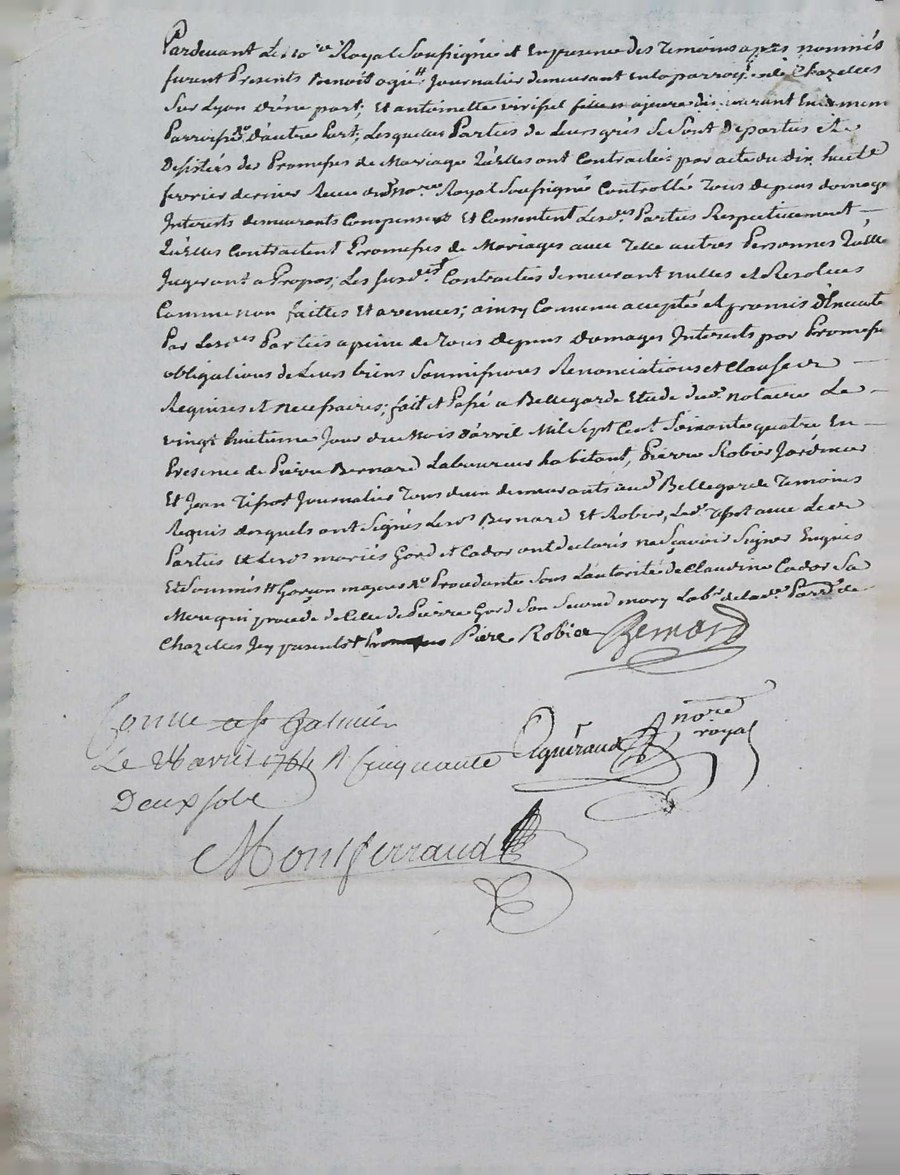 Pardevant Le no.re Royal Soussigné et En presence des temoins apres nommés
furent Presents Benoit Journalier demeurant en la parroisse de Chazelles
Sur Lyon d'une part; Et antoinette fille majeure demeurant En la meme
Parroisse D'autre Part; Lesquelles Parties de Leurs grés Se Sont Departies et
Desistées des Promesses de Mariage qu'elles ont Contractés par acte du Dix huit
fevrier dernier Receu du no.re Royal Soussigné Controllé tous depens domage
Interets demeurants Compensés Et Consentent Lesd.es Parties Respectivement
qu'elles Contractent Promesses de Mariages avec telle autres Personnes qu'elle
Jugeront a Propos; Les susd.es Contractés demeurant nulles et Resolues
Comme non faittes Et avenues; ainsy Convenu accepté et promis d'Execute
Par Lesd.es Parties a peine de tous depens domages Interets par Promesse
obligations de Leurs biens Soumissions Renonciations et Clauses
Requises et necessaires; fait et Passé a Bellegarde Etude dud. notaire Le
vingt huitieme Jour du Mois d'avril Mil Sept Cent Soixante quatre En
Presence de Pierre Bernard Laboureur habitant, Pierre Robier Jardinier
Et Jean Tissot Journalier tous demeurants aud. Bellegarde temoins
Requis desquels ont Signés Lesd. Bernard Et Robier, Led. Tissot avec Lesd.
Parties Et Lesd. mariés Gord et Cador ont declarés ne Sçavoir Signer Enquis
Et Sommés # Garçon majeur Procedante Sous L'autorité de Claudine Cador Sa
Mere qui procede de Celle de Pierre Gord Son Second mary Lab.r de lad. Parr.e de
Chazelles Icy presents Piere Robier Bernard
no.re
royal
Conue a St Galmier
Le avril 1764 R Cinquante
Deux sols
Montferrand